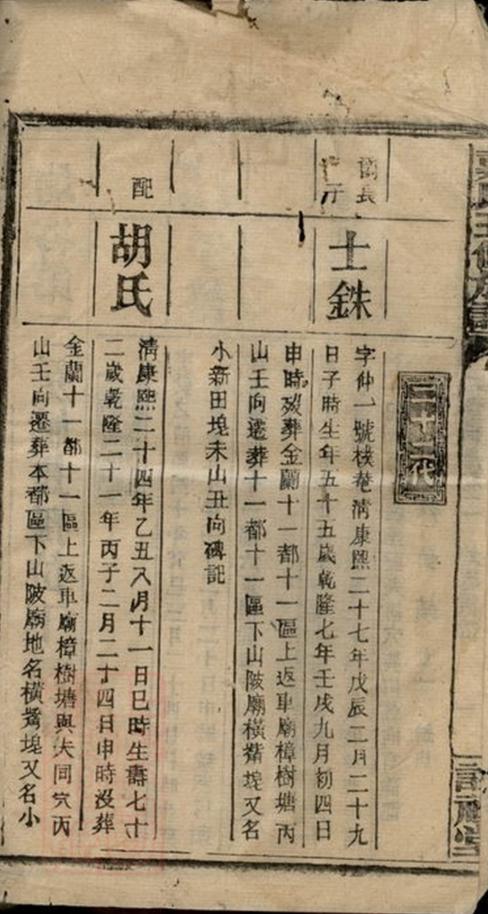 二十三代
士銖
字仲一號棧菴淸康熙二十七年戊辰二月二十九
日子時生年五十五歲乾隆七年壬戌九月初四日
申時歿葬金蘭十一都十一區上返車廟樟樹塘丙
山壬向遷葬十一都十一區下山陂廟橫觜埠又名
小新田埠未山丑向碑記
配
胡氏
淸康熙二十四年乙丑八月十一日巳時生壽七十
二歲乾隆二十一年丙子二月二十四日申時沒葬
金蘭十一都十一區上返車廟樟樹塘與夫同穴丙
山壬向遷葬本都區下山陂廟地名橫觜埠又名小